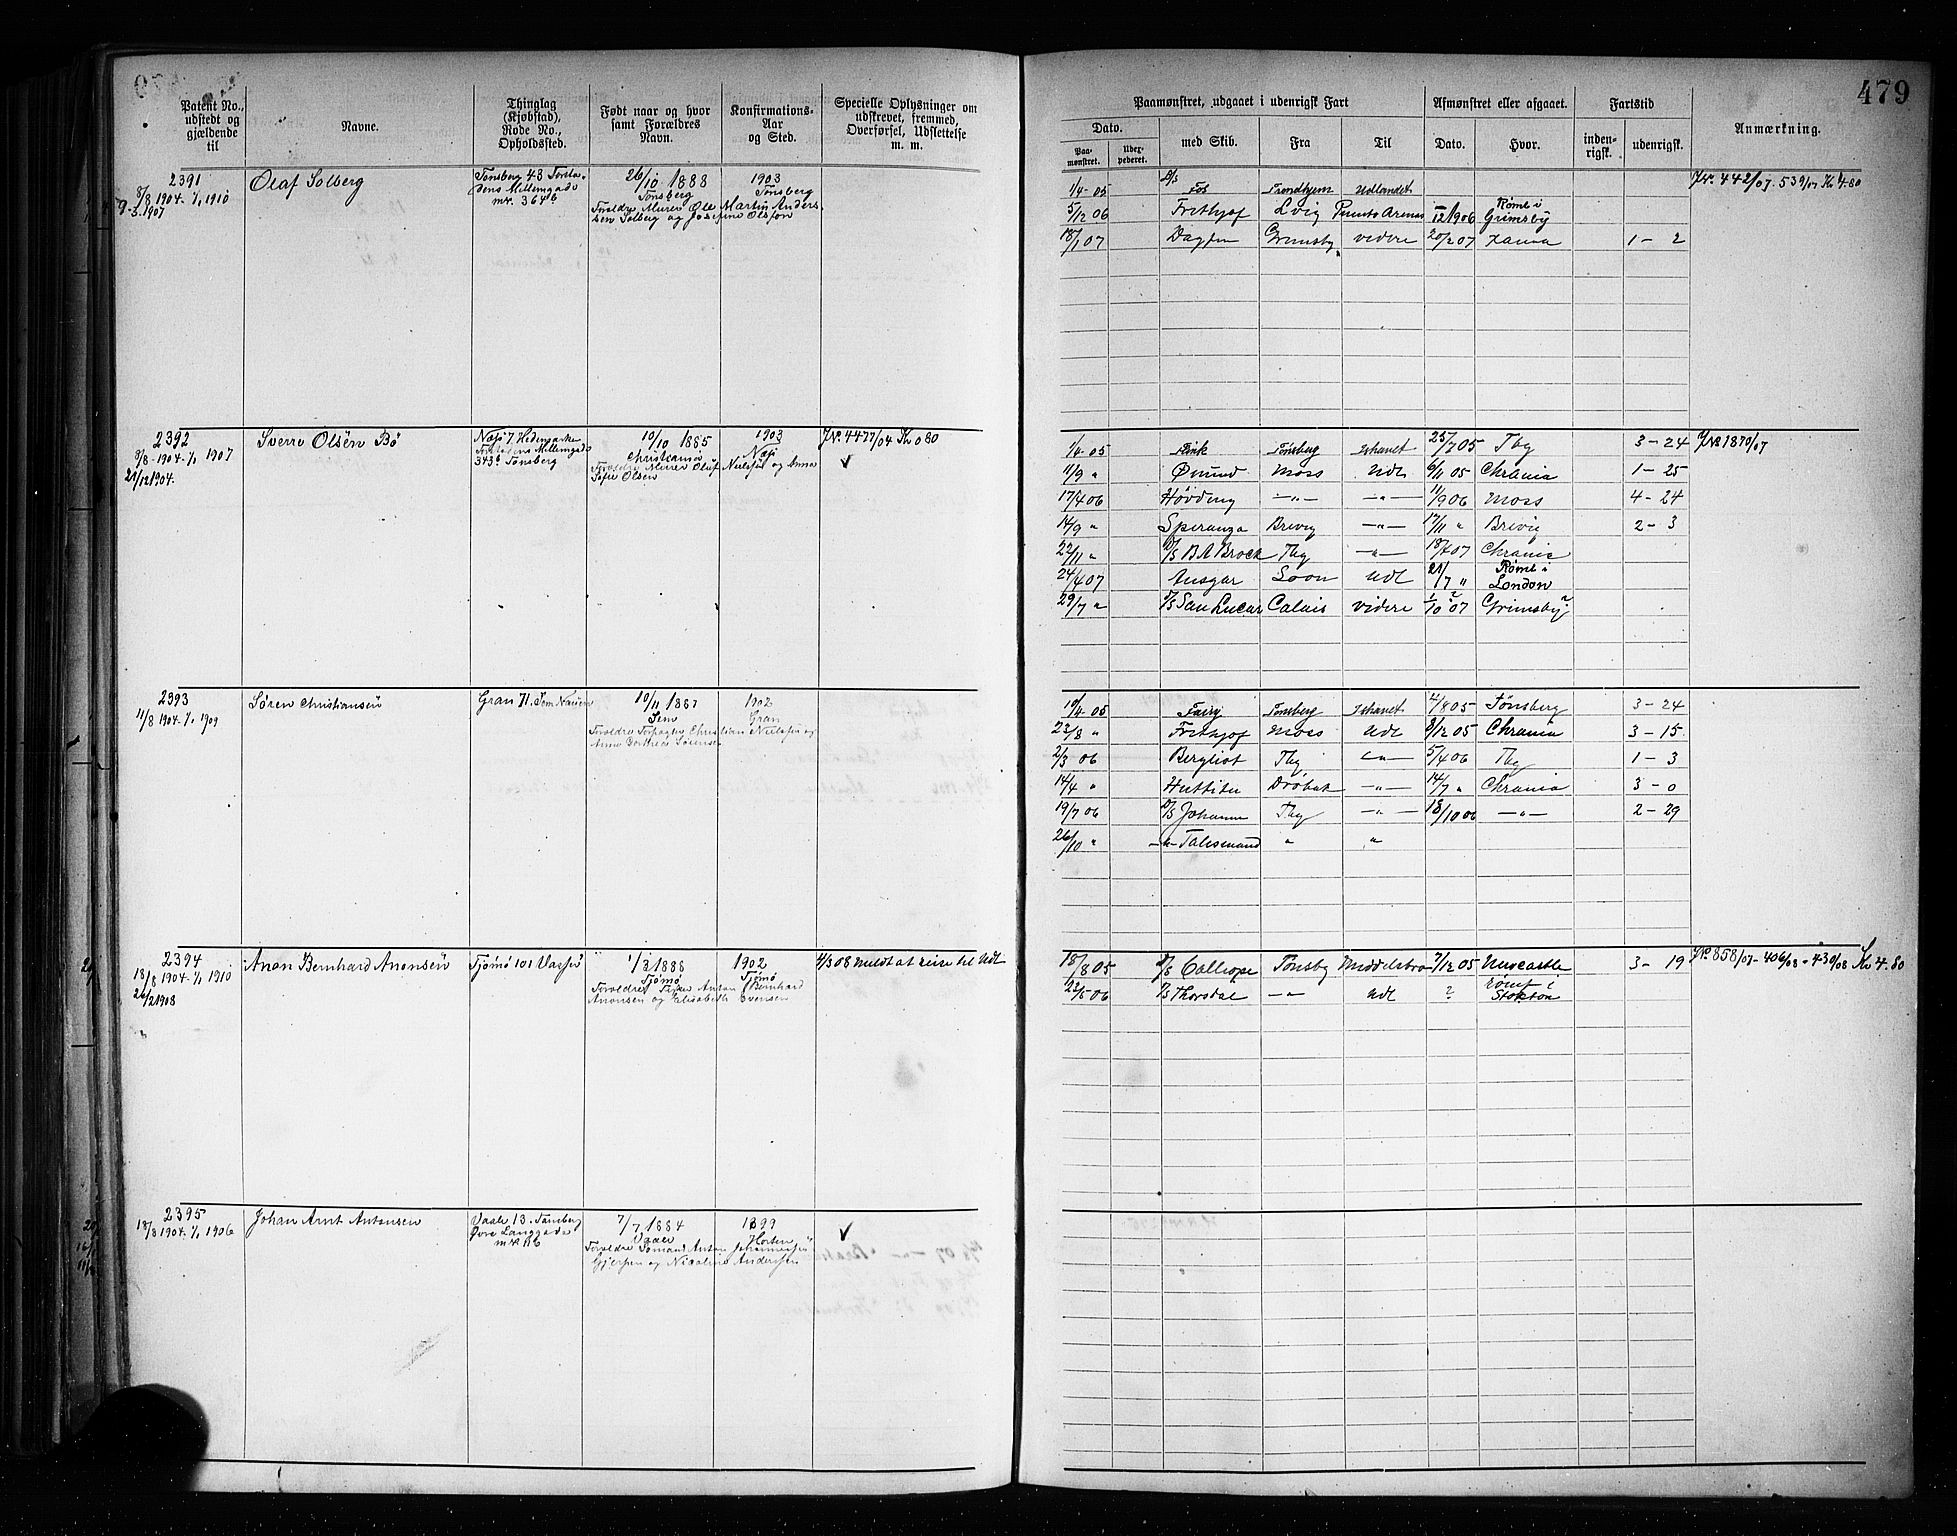 479
Patent No., udstedt og gjældende til
Navne.
Thinglag (Kjøbstad), Rode No., Opholdsted.
Født naar og hvor samt Forældres Navn.
Konfirmations-Aar og Sted.
Specielle Oplysninger om udskrevet, fremmed, Overførsel, Udslettelse m. m.
Paamønstret, udgaaet i udenrigsk Fart
Afmønstret eller afgaaet.
Fartstid
Anmærkning.
Dato.
Paamønstret.
med Skib.
Fra
Til
Dato.
Hvor.
indenrigsk.
udenrigsk.
2391
8/8 1904 - 1/1 1910
9-3.1907
Olaf Solberg
Tønsberg 48
mr. 364b
26/10 1888
Tønsberg
Forældre Murer Ole Martin Andersen Solberg og Josefine Olsson
1903
Tønsberg
1/4-05 Fos Trondhjem Udlandet
J.Nr. 442/07. 539/07 Kr 4.80
5/12 06 Frithjof Lvig Punto Arenas 1906 Rømt i Grimsby
18/1 07 Dagfin Grimsby videre 20/2 07 1 - 2
2392
8/8-1904-1/1 1907
Sverre Olsen Bø
343b Tønsberg
10/10 1885
Christiania
1903
Næs
J.Nr. 4477/04 Kr 0.80
1/4-05 Fink Tønsberg Ishavet 25/7 05 Tbg 3 - 24
J.Nr 1870/07
11/9 " Ømund Moss Udl 6/11 05 Chrania 1 - 25
17/4 06 Høvding -"- -"- 11/9 06 Moss 4 - 24
14/9 " Speranza Brevig -"- 17/11 " Brevig 2 - 3
22/11 " D/S B A Brock Tbg -"- 18/4 07 Chrania
24/4 07 Ansgar Udl 21/7 " Rømt i London
29/7 " D/S San Lucar Calais videre 1/10 07 ? Grimsby ?
2393
11/8 1904-1/1 1909
Søren Christiansen
Gran 71.
10/11 1887
Sem
1902
Gran
10/4-05 Fairy Tønsberg Ishavet 4/8 05 Tønsberg 3 - 24
23/8 " Frithjof Moss Udl 8/12 05 Chrania 3 - 15
2/3 06 Bergliot Tbg -"- 5/4 06 Tbg 1 - 3
14/4 " Huttitu Drøbak -"- 14/7 " Chrania 3 - 0
19/7 06 D/S Johanne Tbg -"- 18/10 06 -"- 2 - 29
26/10 " -"- Talismand " "
2394
18/8 1904-1/1 1910
26/2 1908
Anon Bernhard Anonsen
Tjømø 101
1/3 1888
Tjømø
1902
Tjømø
4/3 08 meldt at reise til Udl
18/8 05 D/S Calliope Tønsbg Middelsbro 7/12 05 Newcastle 3 - 19
J.Nr. 858/07 - 406/08 - 430/08 Kr 4.80
23/5 06 D/S Thorsdal -"- Udl ? rømt i Stokton
2395
18/8 1904-1/1 1906
Johan Arnt Antonsen
Vaale 13. Tønsberg
Øvre Langgade
mr. 116
7/7 1884
Vaale
Forældre Sømand Anton Johannessen Gjerpen og Nicoline Anderssen
1899
Horten